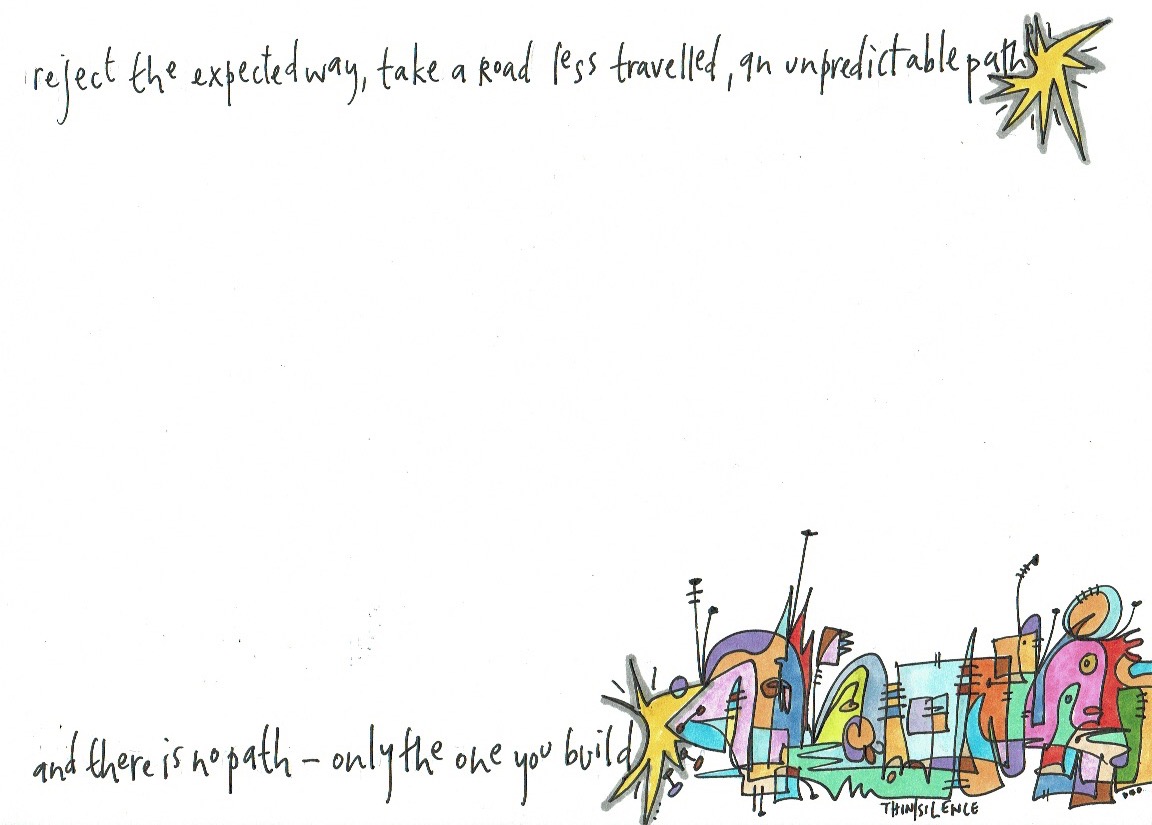 reject the expected way, take a road less travelled, an unpredictable path
and there is no path – only the one you build
THINSILENCE